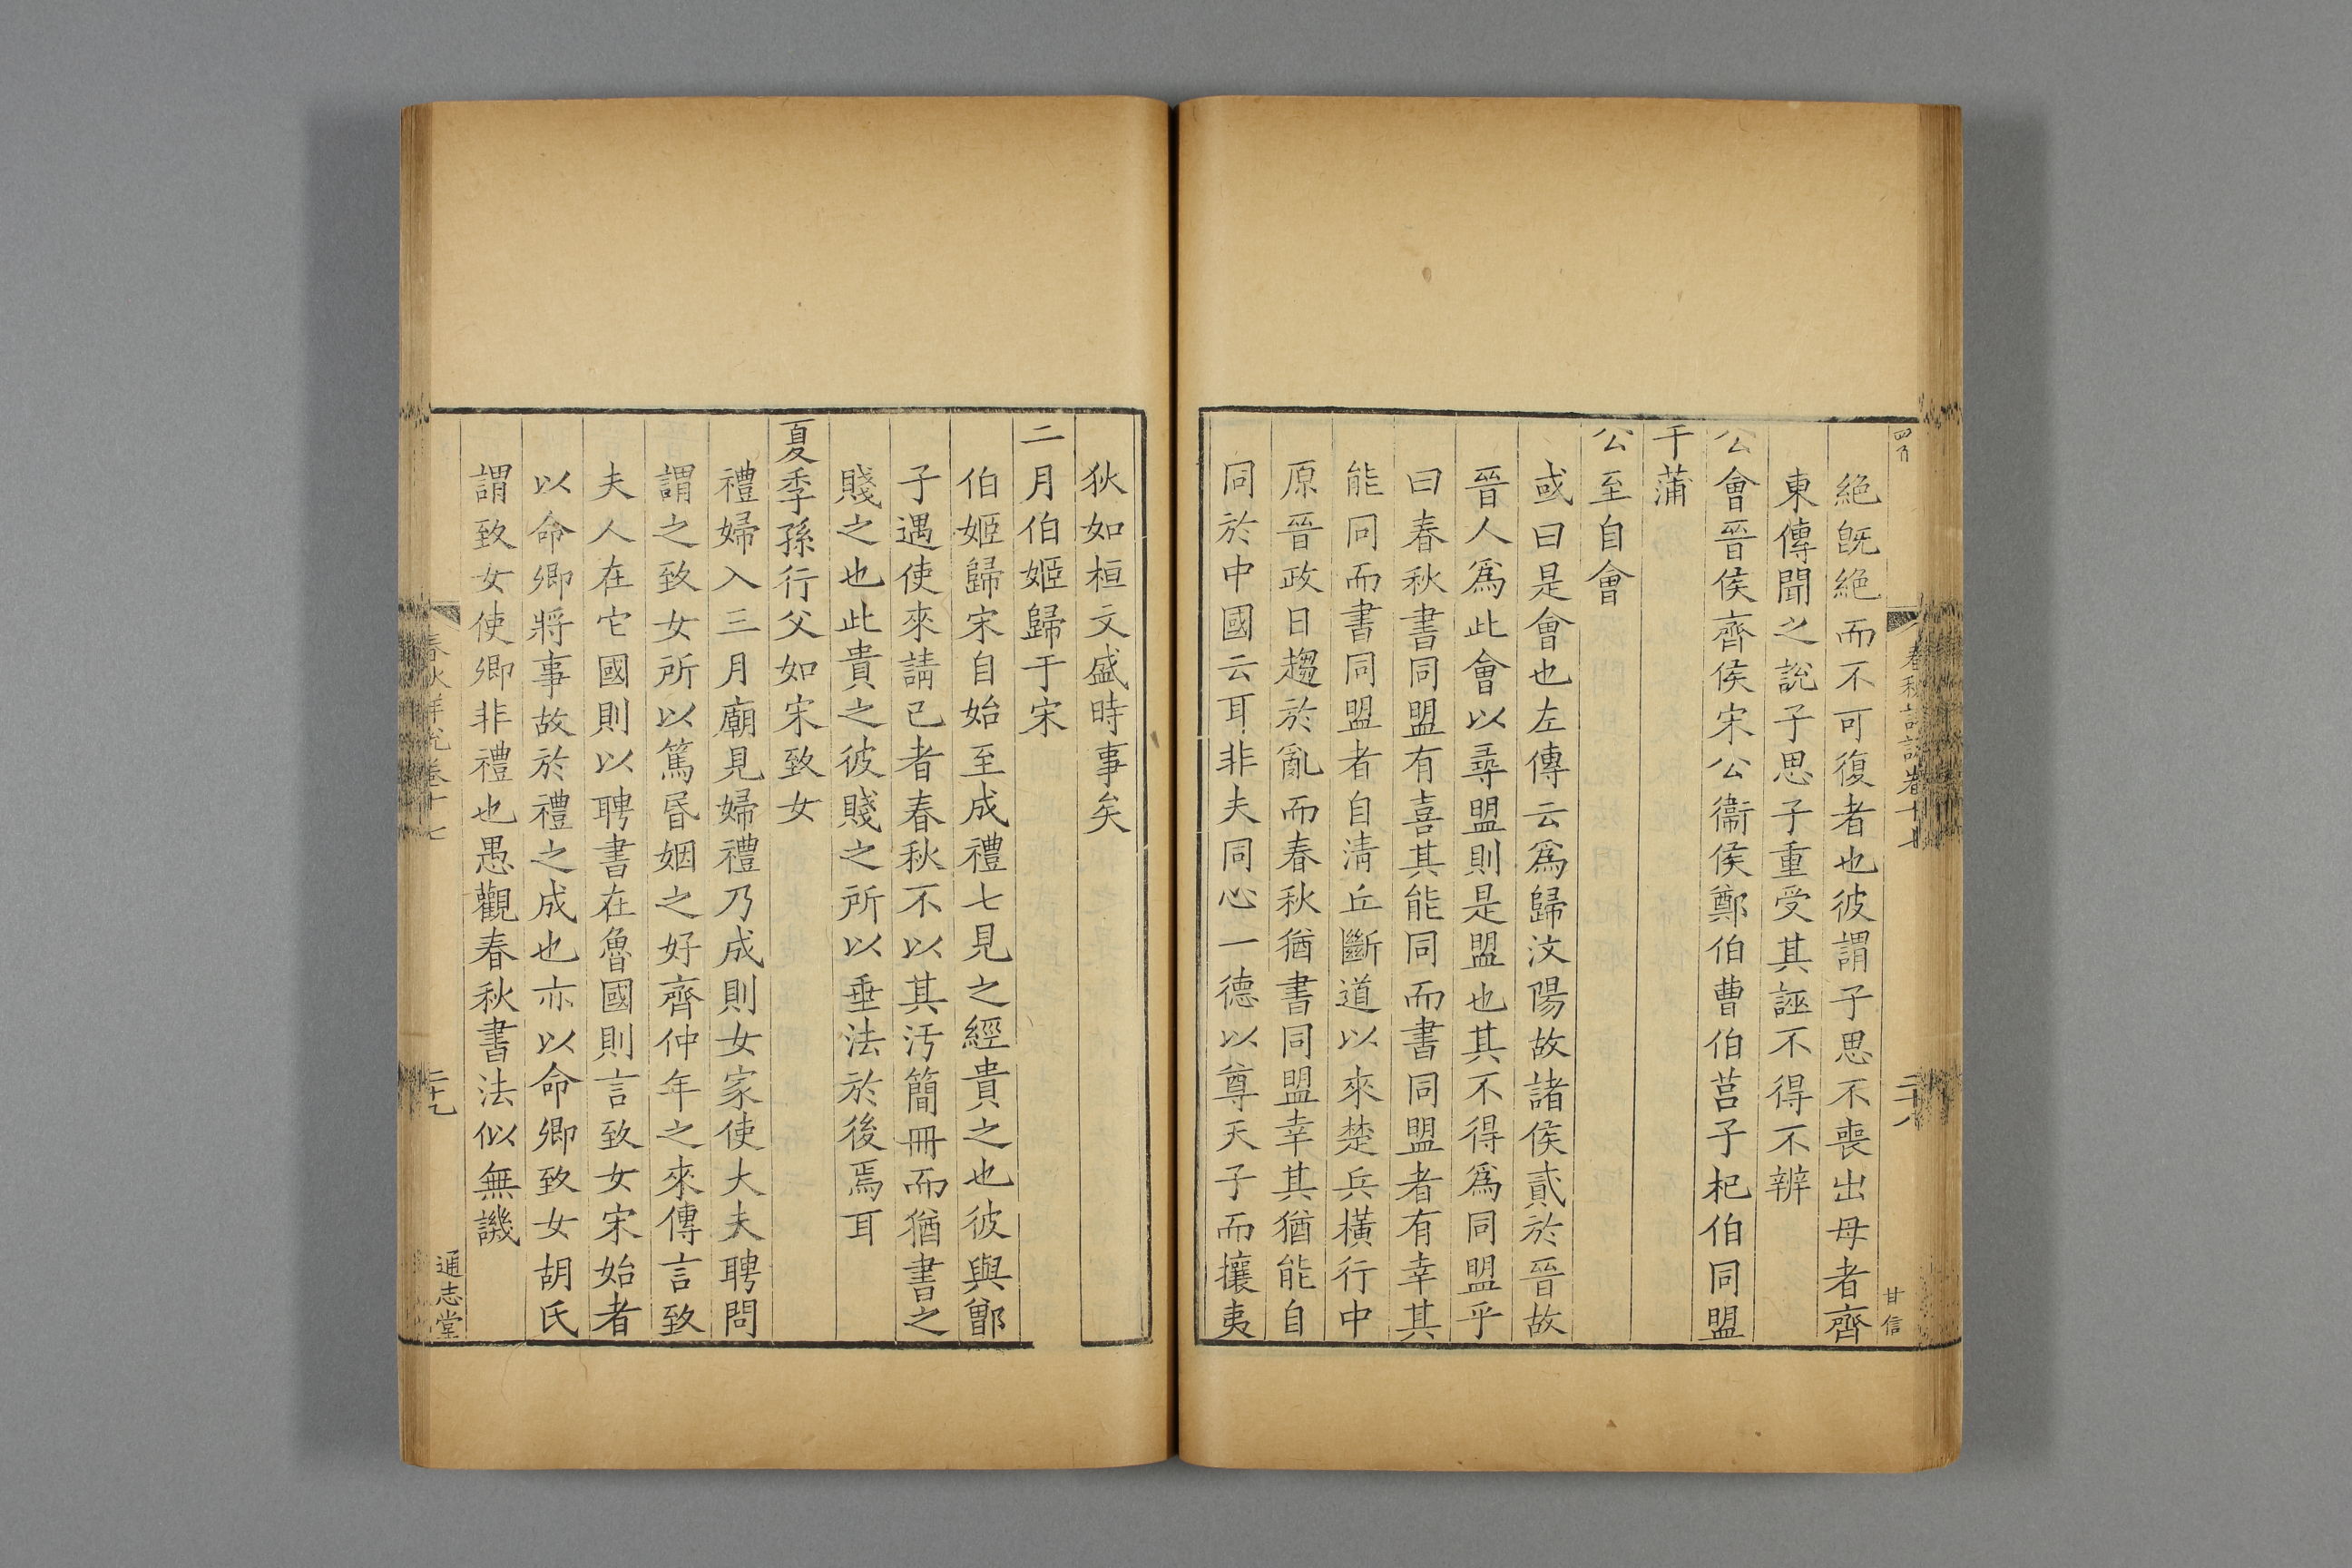 絕旣絕而不可復者也彼謂子思不喪出母者齊
東傳聞之說子思子重受其誣不得不辨
公會晉侯齊侯宋公衞侯鄭伯曹伯莒子杞伯同盟
于蒲
公至自會
或曰是會也左傳云爲歸汶陽故諸侯貳於晉故
晉人爲此會以尋盟則是盟也其不得爲同盟乎
曰春秋書同盟有喜其能同而書同盟者有幸其
能同而書同盟者自淸丘斷道以來楚兵橫行中
原晉政日趨於亂而春秋猶書同盟幸其猶能自
同於中國云耳非夫同心一德以尊天子而攘夷
甘信
狄如桓文盛時事矣
二月伯姬歸于宋
伯姬歸宋自始至成禮七見之經貴之也彼與鄫
子遇使來請己者春秋不以其汚簡冊而猶書之
賤之也此貴之彼賤之所以垂法於後焉耳
夏季孫行父如宋致女
禮婦入三月廟見婦禮乃成則女家使大夫聘問
謂之致女所以篤昏姻之好齊仲年之來傳言致
夫人在它國則以聘書在魯國則言致女宋始者
以命卿將事故於禮之成也亦以命卿致女胡氏
謂致女使卿非禮也愚觀春秋書法似無譏
春秋詳說卷十七
二十九
通志堂